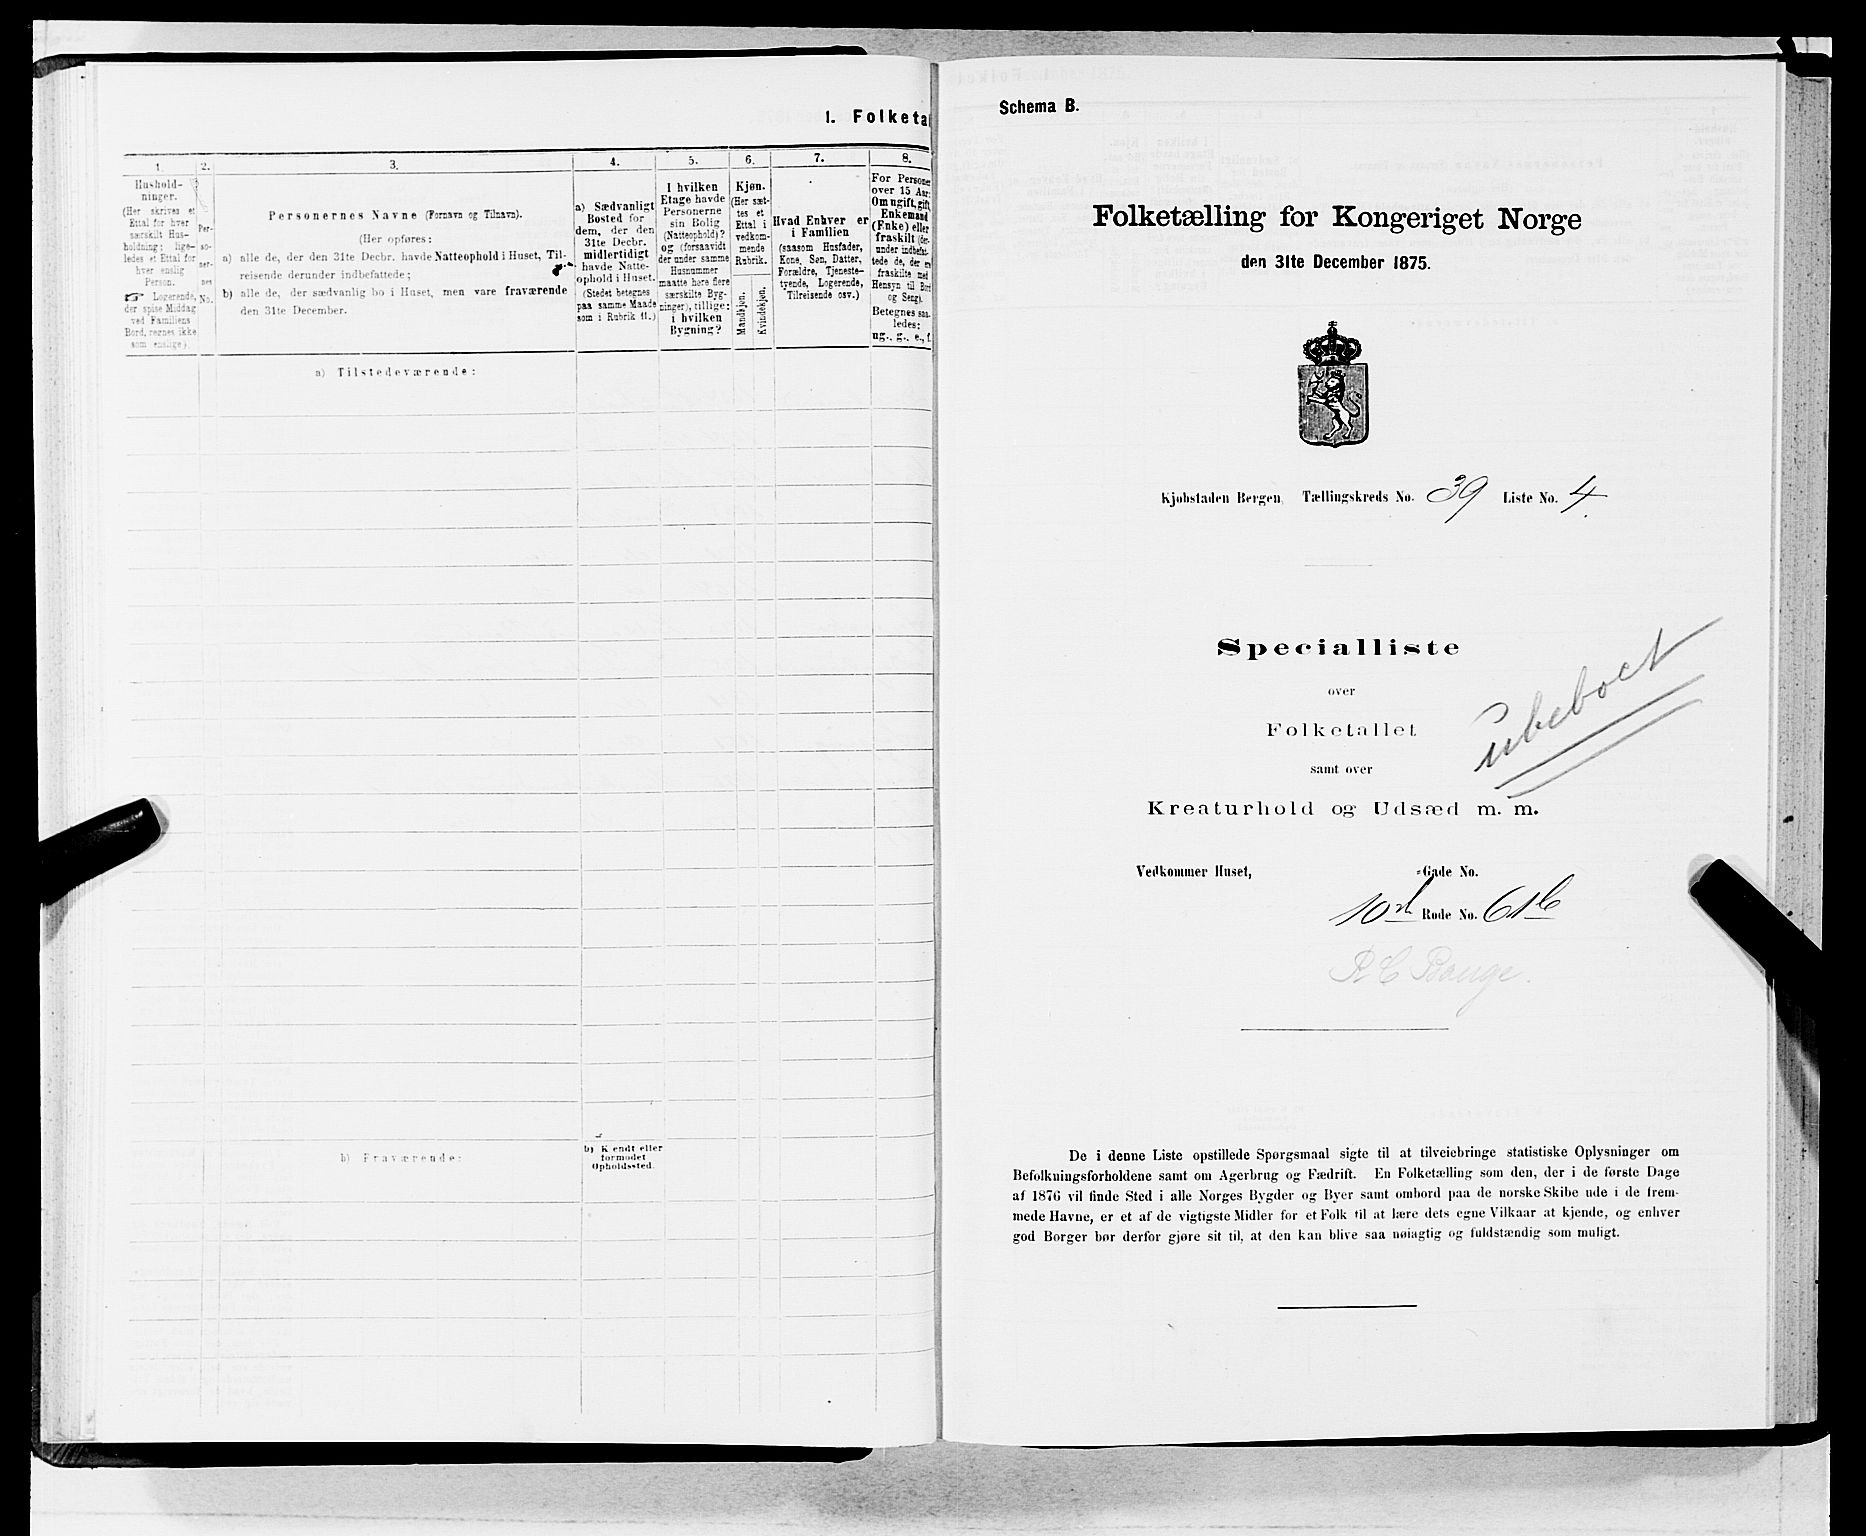 1. Folketal
1.
Hushold-
ninger.
(Her skrives et
Ettal for hver
særskilt Hus-
holdning; lige-
ledes et Ettal for
hver enslig
Person.
☞ Logerende,
der spise Middag
ved Familiens
Bord, regnes ikke
som enslige).
2.
Per-
so-
ner-
nes
No.
3.
Personernes Navne (Fornavn og Tilnavn).
(Her opføres:
a) alle de, der den 31te Decbr. havde Natteophold i Huset, Til-
reisende derunder indbefattede;
b) alle de, der sædvanlig bo i Huset, men vare fraværende
den 31te December.
4.
a) Sædvanligt
Bosted for
dem, der den
31te Decbr.
midlertidigt
havde Natte-
ophold i Huset.
(Stedet betegnes
paa samme Maade
som i Rubrik 11.)
5.
I hvilken
Etage havde
Personerne
sin Bolig
(Natteophold)?
og (forsaavidt
der under samme
Husnummer
maatte høre flere
særskilte Byg-
ninger), tillige:
i hvilken
Bygning?
6.
Kjøn.
(Her sæt-
tes et
Ettal i
vedkom-
mende
Rubrik.
Mandkjøn.
Kvindekjøn.
7.
Hvad Enhver er
i Familien
(saasom Husfader,
Kone, Søn, Datter,
Forældre, Tjeneste-
tyende, Logerende,
Tilreisende osv.)
8.
For Personer
over 15 Aar:
Om ugift, gift,
Enkemand
(Enke) eller
fraskilt (der-
under indbefat-
tede de, der ere
fraskilte med
Hensyn til Bord
og Seng).
Betegnes saa-
ledes:
ug., g., e., f.
a) Tilstedeværende:
b) Fraværende:
b) Kjendt eller
formodet
Opholdssted.
Schema B.
Folketælling for Kongeriget Norge
den 31te December 1875.
Kjøbstaden Bergen, Tællingskreds No. 39 Liste No. 4.
Specialliste
over
Folketallet
samt over
Kreaturhold og Udsæd m. m.
ubeboet
Vedkommer Huset, -Gade No.
10de Rode No. 61b
samt
De i denne Liste opstillede Spørgsmaal sigte til at tilveiebringe statistiske Oplysninger om
Befolkningsforholdene samt om Agerbrug og Fædrift. En Folketælling som den, der i de første Dage
af 1876 vil finde Sted i alle Norges Bygder og Byer samt ombord paa de norske Skibe ude i de frem-
mede Havne, er et af de vigtigste Midler for et Folk til at lære dets egne Vilkaar at kjende, og enhver
god Borger bør derfor gjøre sit til, at den kan blive saa nøiagtig og fuldstændig som muligt.